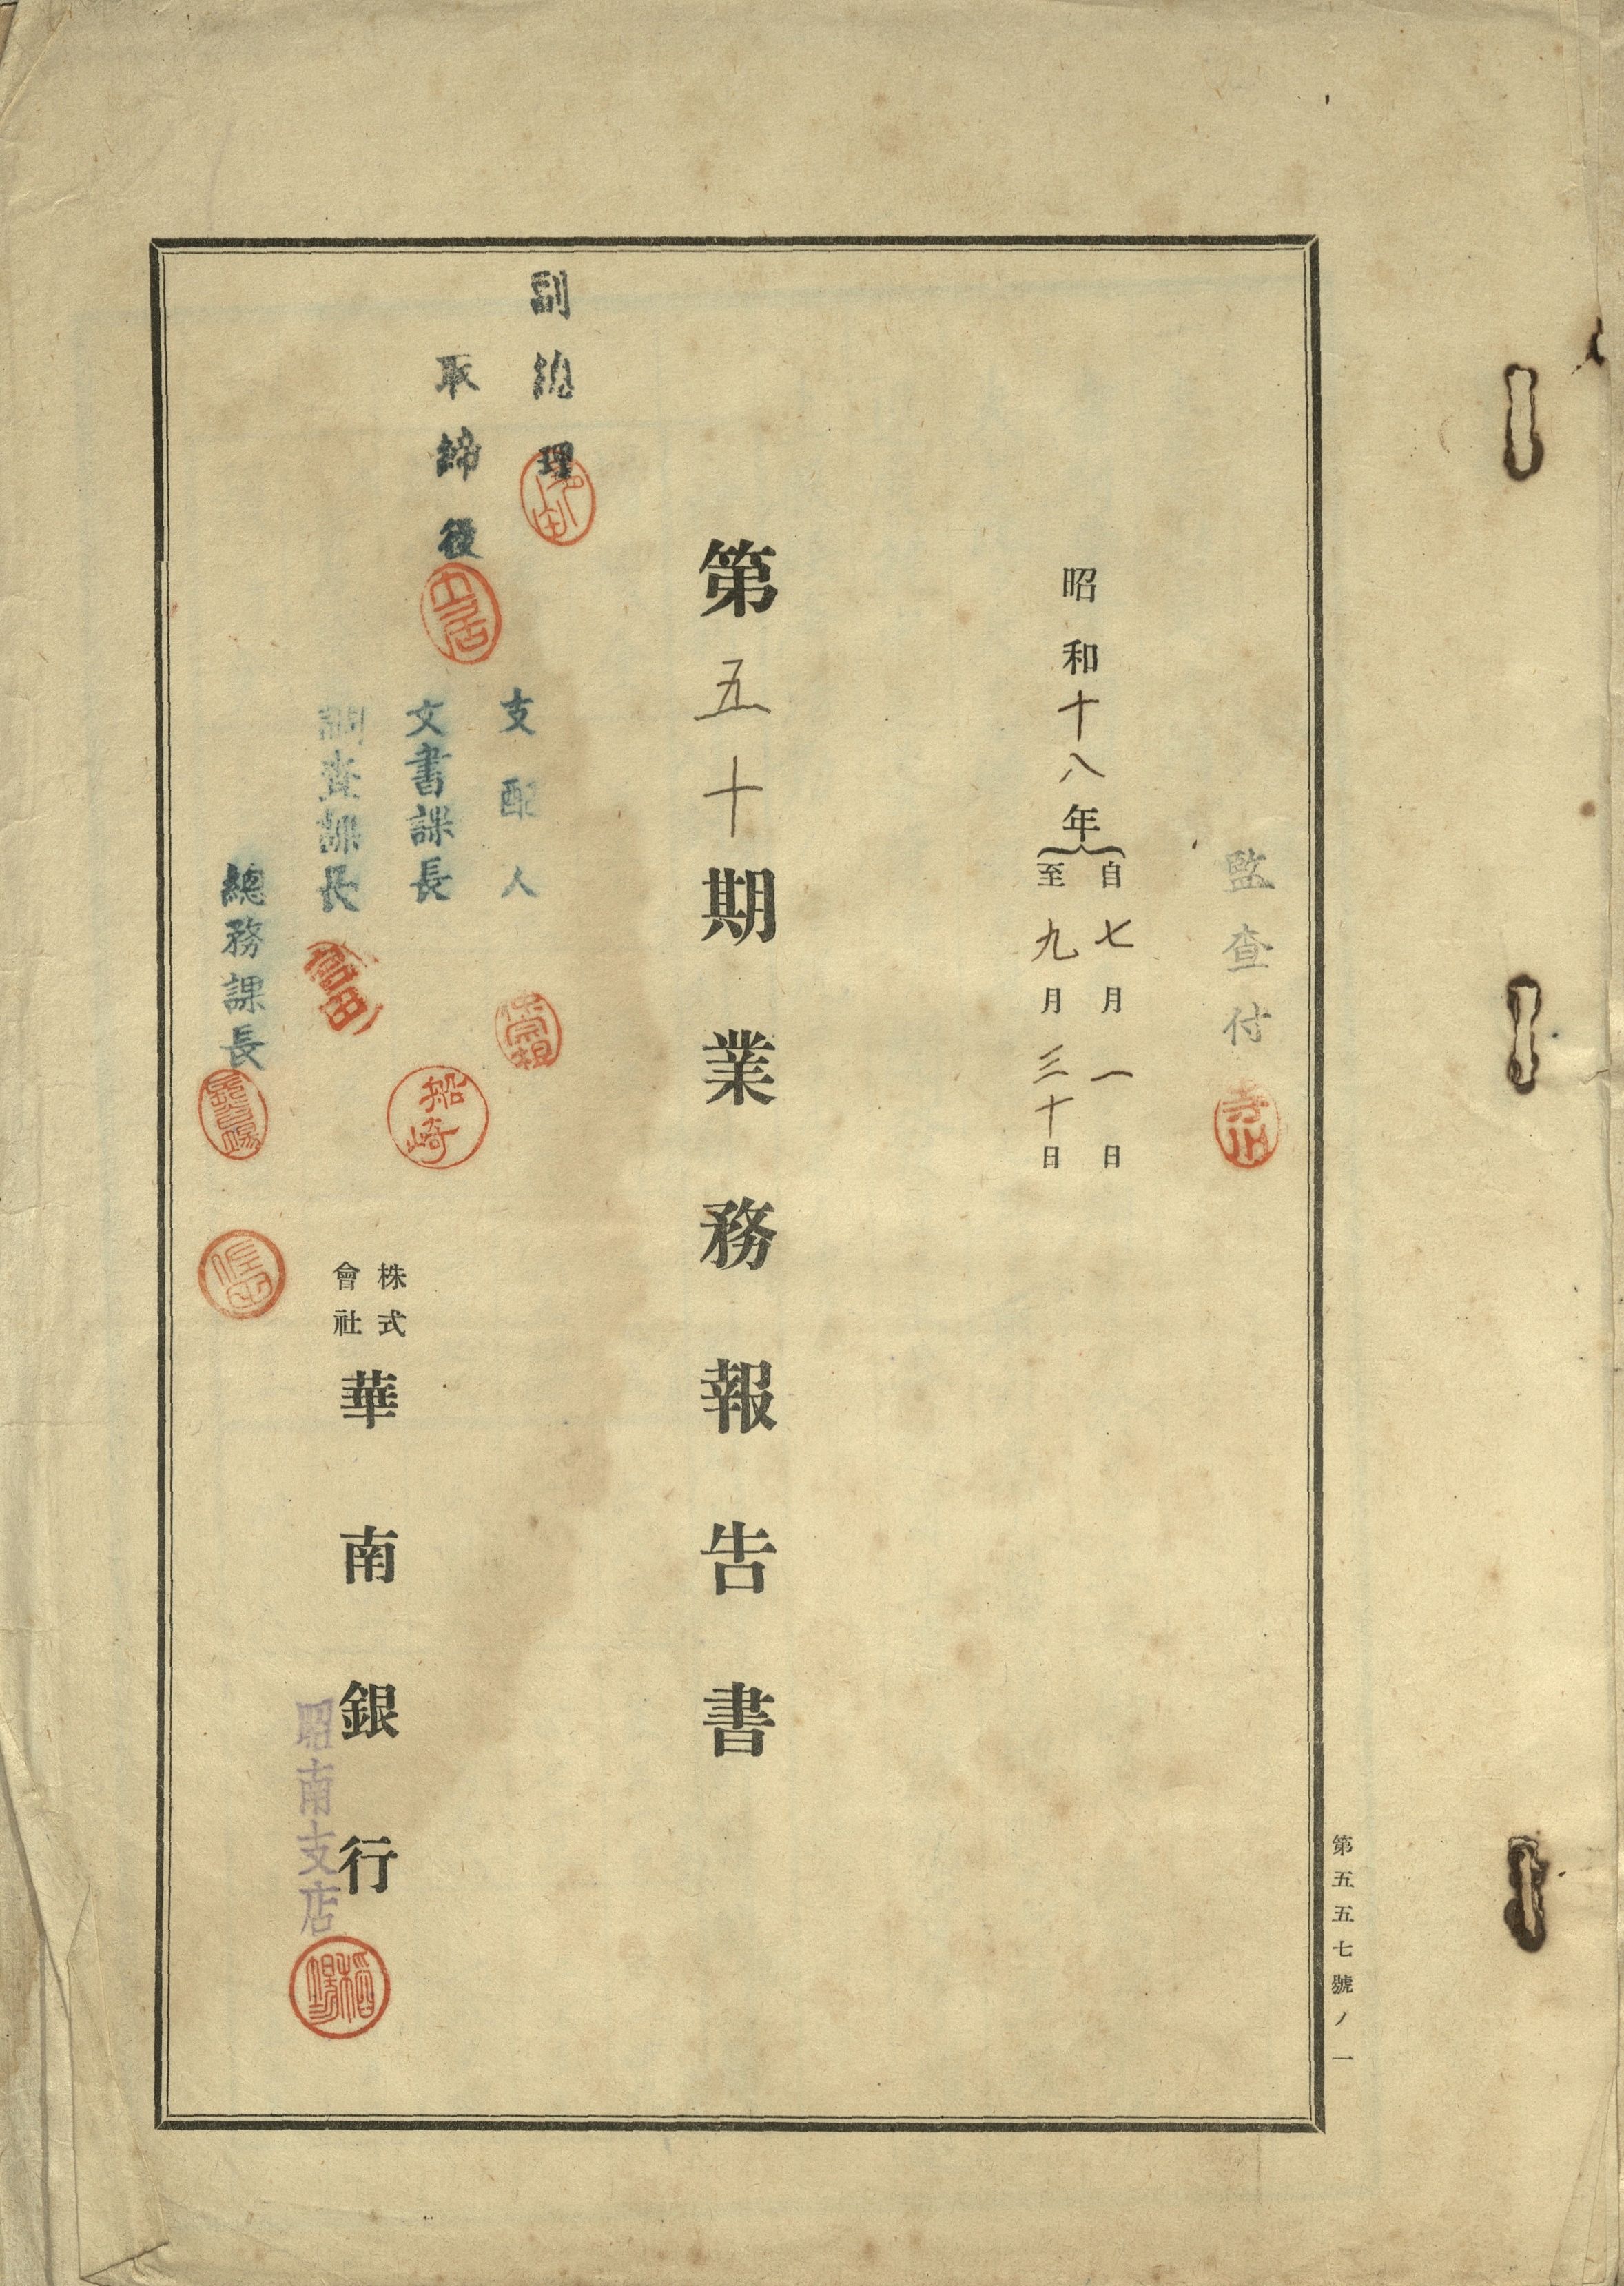 監查付
寺山
昭和十八年
自七月一日
至九月三十日
第五十期業務報告書
副總理
取締役
土居
支配人
文書課長
船崎
調查課長
富田
總務課長
株式
會社
華南銀行
昭南支店
第五五七號ノ一